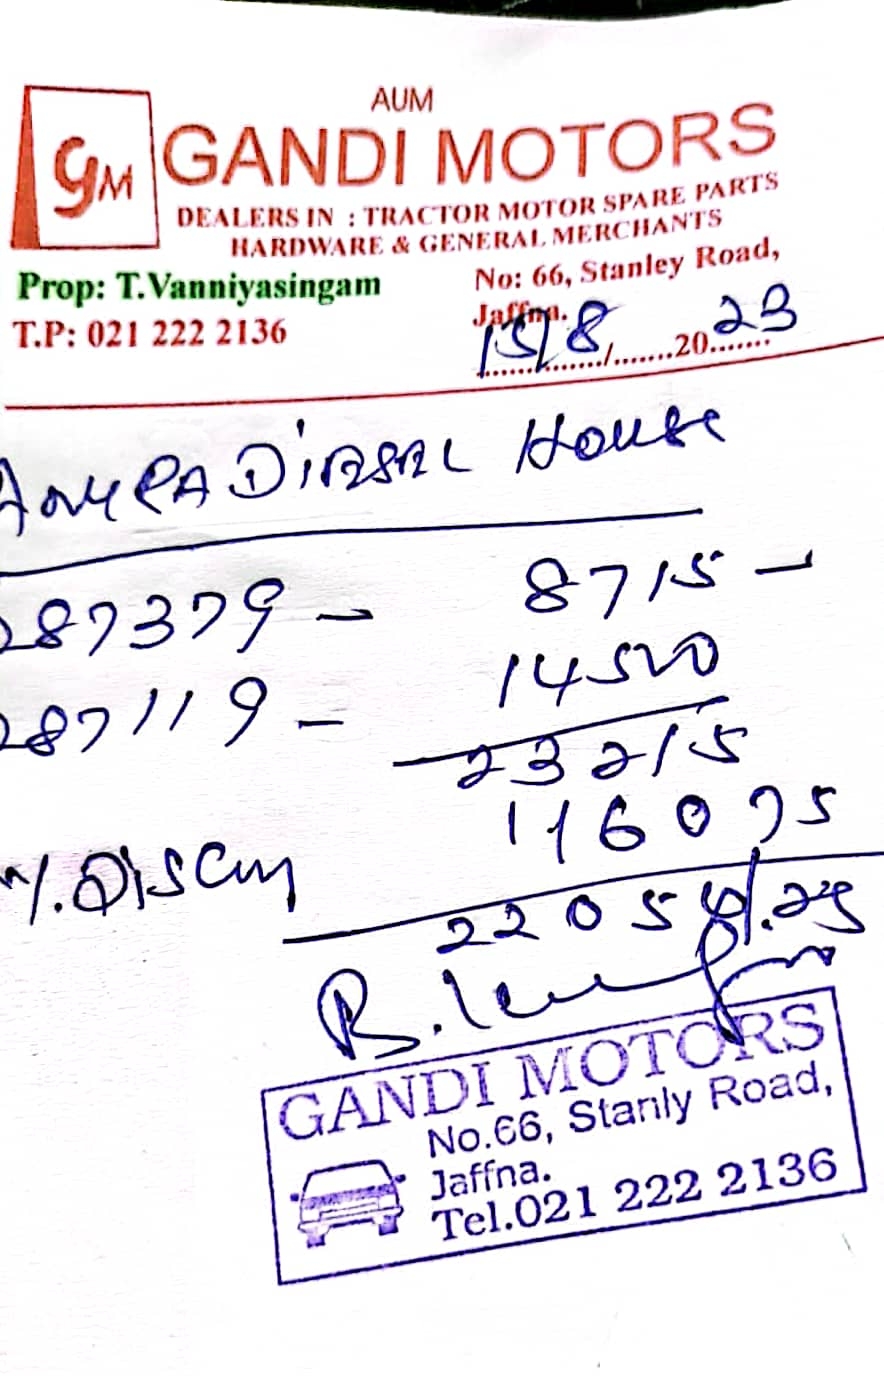 AUM
GM GANDI MOTORS
DEALERS IN : TRACTOR MOTOR SPARE PARTS
HARDWARE & GENERAL MERCHANTS
Prop: T.Vanniyasingam
No: 66, Stanley Road,
Jaffna.
T.P: 021 222 2136
15/8/.......2023
Anura Diesel House
287379 - 8715 -
287119 - 14500
23215
%. Discun 1160 75
22054/.25
GANDI MOTORS
No.66, Stanly Road,
Jaffna.
Tel.021 222 2136